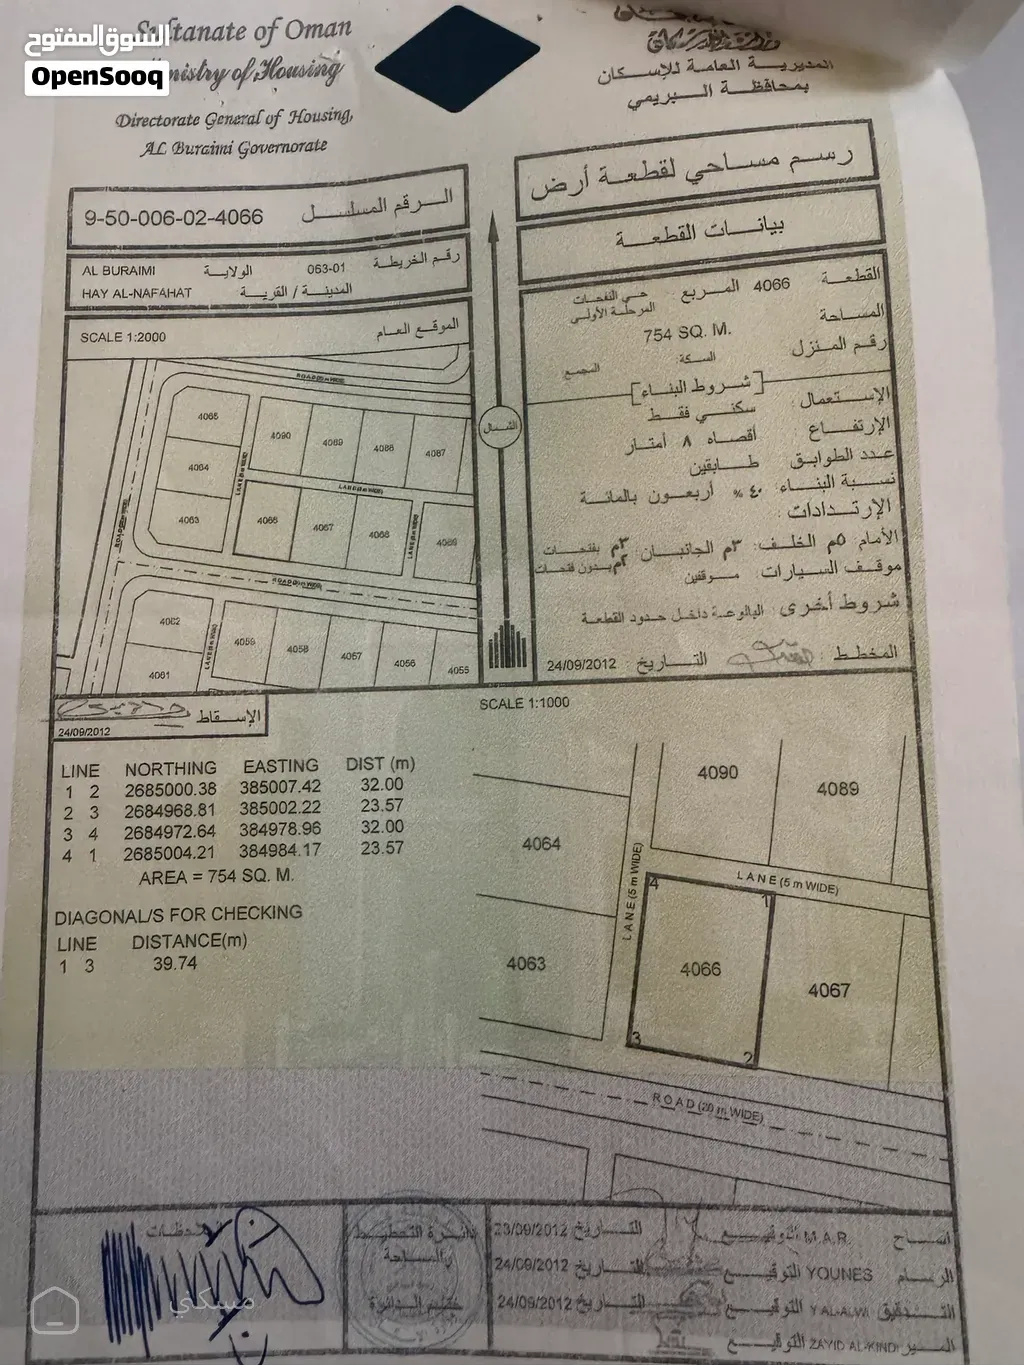 السوق المفتوح
OpenSooq
Sultanate of Oman
Ministry of Housing
Directorate General of Housing,
AL Buraimi Governorate
المديرية العامة للإسكان
بمحافظة البريمي
رسم مساحي لقطعة أرض
بيانات القطعة
9-50-006-02-4066 الرقم المسلسل
063-01 رقم الخريطة
AL BURAIMI الولاية
HAY AL-NAFAHAT المدينة / القرية
SCALE 1:2000 الموقع العام
القطعة 4066 المربع حي النفحات المرحلة الأولى
المساحة 754 SQ. M.
رقم المنزل السكة المجمع
شروط البناء
الإستعمال: سكني فقط
الإرتفاع أقصاه ٨ أمتار
عدد الطوابق طابقين
نسبة البناء: ٤٠ % أربعون بالمائة
الإرتدادات:
الأمام ٥م الخلف: ٣م الجانبان ٣م بفتحات ٢م بدون فتحات
موقف السيارات: موقفين
شروط أخرى البالوعة داخل حدود القطعة
المخطط التاريخ 24/09/2012
الشمال
ROAD (20 m WIDE)
4065
4090
4089
4088
4087
4064
LANE (5 m WIDE)
4063
4066
4067
4068
4069
ROAD (20 m WIDE)
4062
4059
4058
4057
4056
4055
4061
الإسقاط
24/09/2012
LINE NORTHING EASTING DIST (m)
1 2 2685000.38 385007.42 32.00
2 3 2684968.81 385002.22 23.57
3 4 2684972.64 384978.96 32.00
4 1 2685004.21 384984.17 23.57
AREA = 754 SQ. M.
DIAGONAL/S FOR CHECKING
LINE DISTANCE(m)
1 3 39.74
SCALE 1:1000
4090
4089
4064
LANE (5 m WIDE)
LANE (5 m WIDE)
4
1
4063
4066
4067
3
2
ROAD (20 m WIDE)
M.A.R. التوقيع التاريخ 23/09/2012
الرسام YOUNES التوقيع التاريخ 24/09/2012
التدقيق Y.AL-ALWI التوقيع التاريخ 24/09/2012
المدير ZAYID AL-KINDI التوقيع
دائرة التخطيط
والمساحة
ختم الدائرة